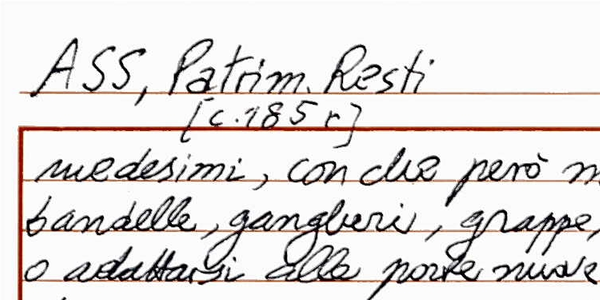 ASS, Patrim. Resti
[c. 185 r]
medesimi, con che però
bandelle, gangheri, grappe,
o adattarsi alle porte nuove